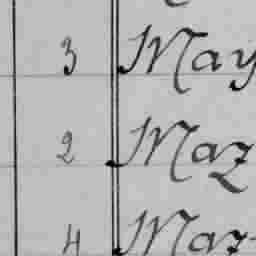 3 May
2 Maz
4 Maz